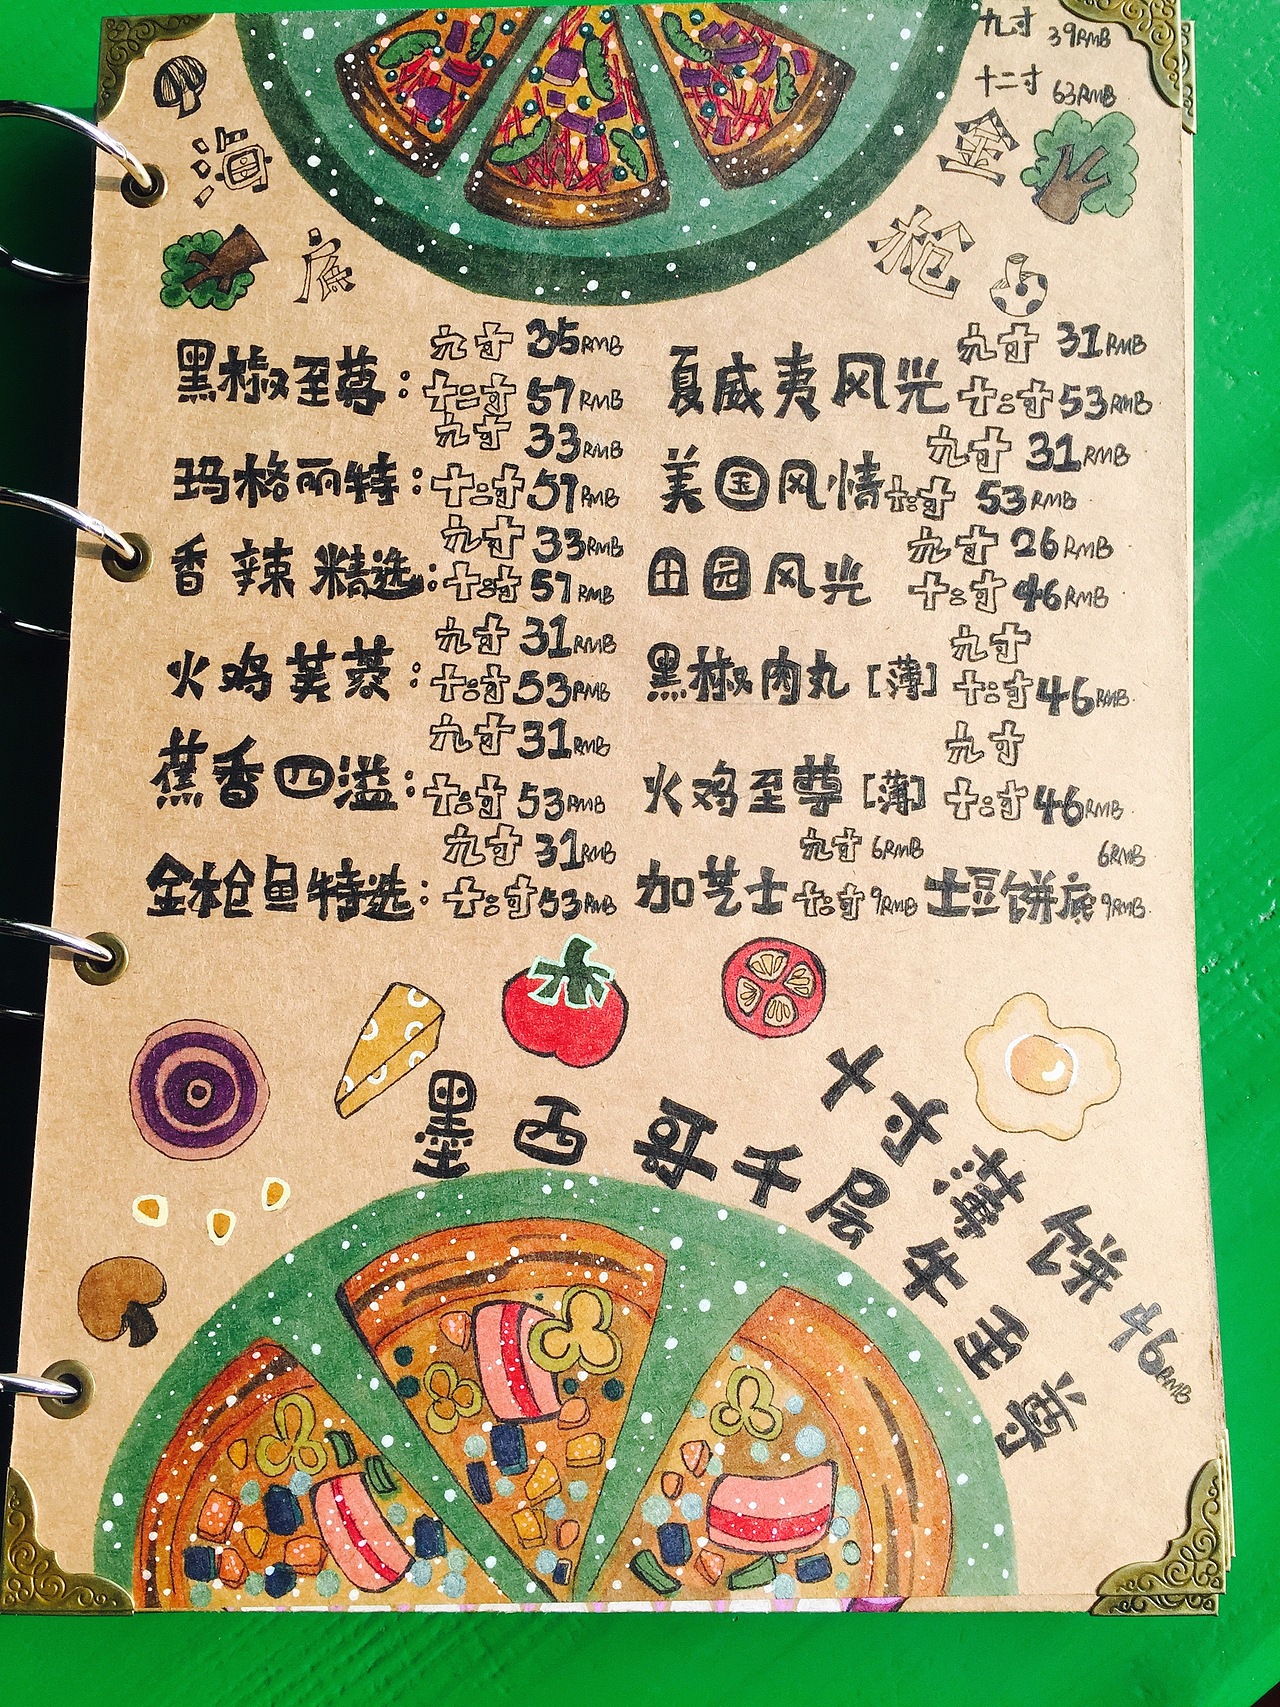 九寸 39RMB
十二寸 63RMB
海底
金枪
黑椒至尊: 九寸 35RMB
十二寸 57RMB
玛格丽特: 九寸 33RMB
十二寸 57RMB
香辣精选: 九寸 33RMB
十二寸 57RMB
火鸡芙蓉: 九寸 31RMB
十二寸 53RMB
蕉香四溢: 九寸 31RMB
十二寸 53RMB
金枪鱼特选: 九寸 31RMB
十二寸 53RMB
夏威夷风光 九寸 31RMB
十二寸 53RMB
美国风情 九寸 31RMB
十二寸 53RMB
田园风光 九寸 26RMB
十二寸 46RMB
黑椒肉丸[薄] 九寸
十二寸 46RMB
火鸡至尊[薄] 九寸
十二寸 46RMB
加芝士 九寸 6RMB
十二寸 9RMB
土豆饼底 6RMB
9RMB
墨西哥千层牛至尊
十寸薄饼 46RMB